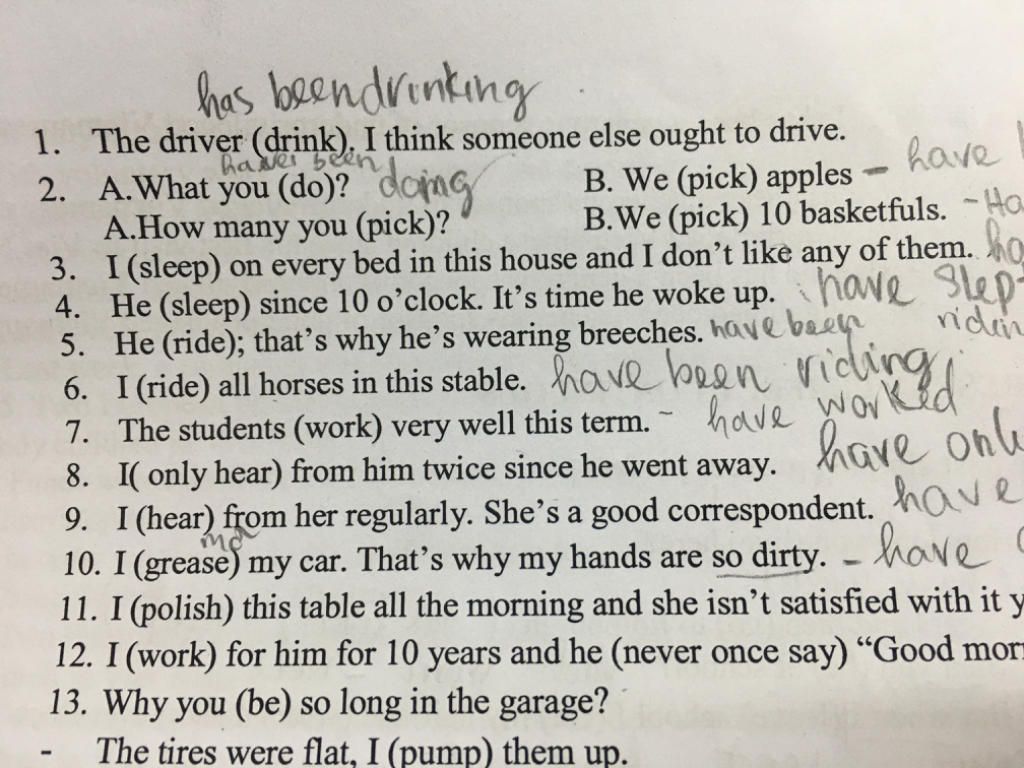 has been drinking
1. The driver (drink). I think someone else ought to drive.
been
2. A.What you (do)? doing B. We (pick) apples – have
A.How many you (pick)? B.We (pick) 10 basketfuls. -
3. I (sleep) on every bed in this house and I don't like any of them.
4. He (sleep) since 10 o'clock. It's time he woke up. have Slep
5. He (ride); that's why he's wearing breeches. have been ridin
6. I (ride) all horses in this stable. have been riding
7. The students (work) very well this term. - have worked
8. I( only hear) from him twice since he went away. have onl
9. I (hear) from her regularly. She's a good correspondent. have
10. I (grease) my car. That's why my hands are so dirty. - have
11. I (polish) this table all the morning and she isn't satisfied with it y
12. I (work) for him for 10 years and he (never once say) “Good mor
13. Why you (be) so long in the garage?
- The tires were flat, I (pump) them up.